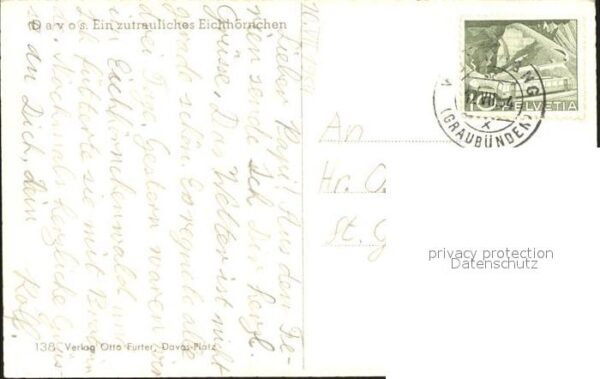 Davos. Ein zutrauliches Eichhörnchen
10. VII. 1954
Lieber Papi! Aus den Fe-
rien sende ich Dir herzl.
Grüsse. Das Wetter ist nicht
gerade schön. Es regnete alle
drei Tage. Gestern waren wir
im Eichhörnchenwald und
ich fütterte sie mit
Noch als herzliche Grüs-
se an Dich, dein
Rolf.
138 Verlag Otto Furter, Davos-Platz
An
Hr. O.
St. G
10 HELVETIA
(GRAUBÜNDEN)
privacy protection
Datenschutz